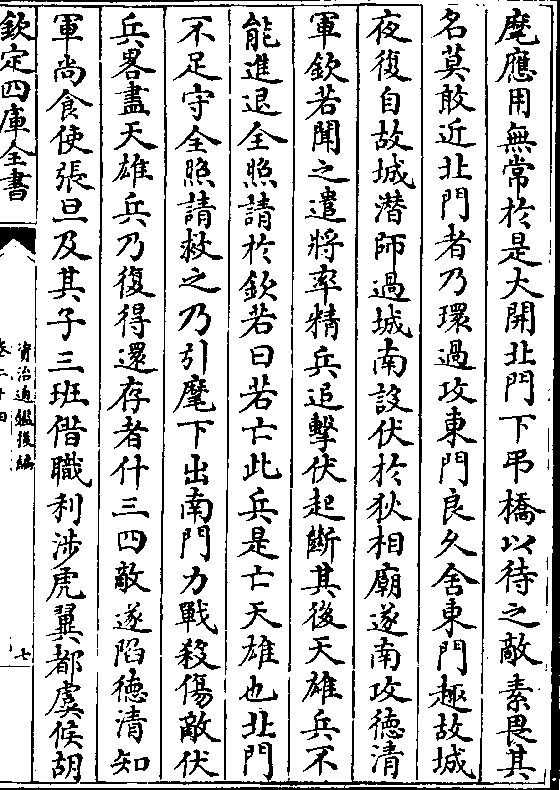 麾應用無常於是大開北門下弔橋以待之敵素畏其
名莫敢近北門者乃環過攻東門良久舍東門趣故城
夜復自故城潛師過城南設伏於狄相廟遂南攻德清
軍欽若聞之遣將率精兵追擊伏起斷其後天雄兵不
能進退全照請於欽若曰若亡此兵是亡天雄也北門
不足守全照請救之乃引麾下出南門力戰殺傷敵伏
兵畧盡天雄兵乃復得還存者什三四敵遂陷德清知
軍尚食使張旦及其子三班借職利涉虎翼都虞候胡
欽定四庫全書
資治通鑑後編
卷二十四
七